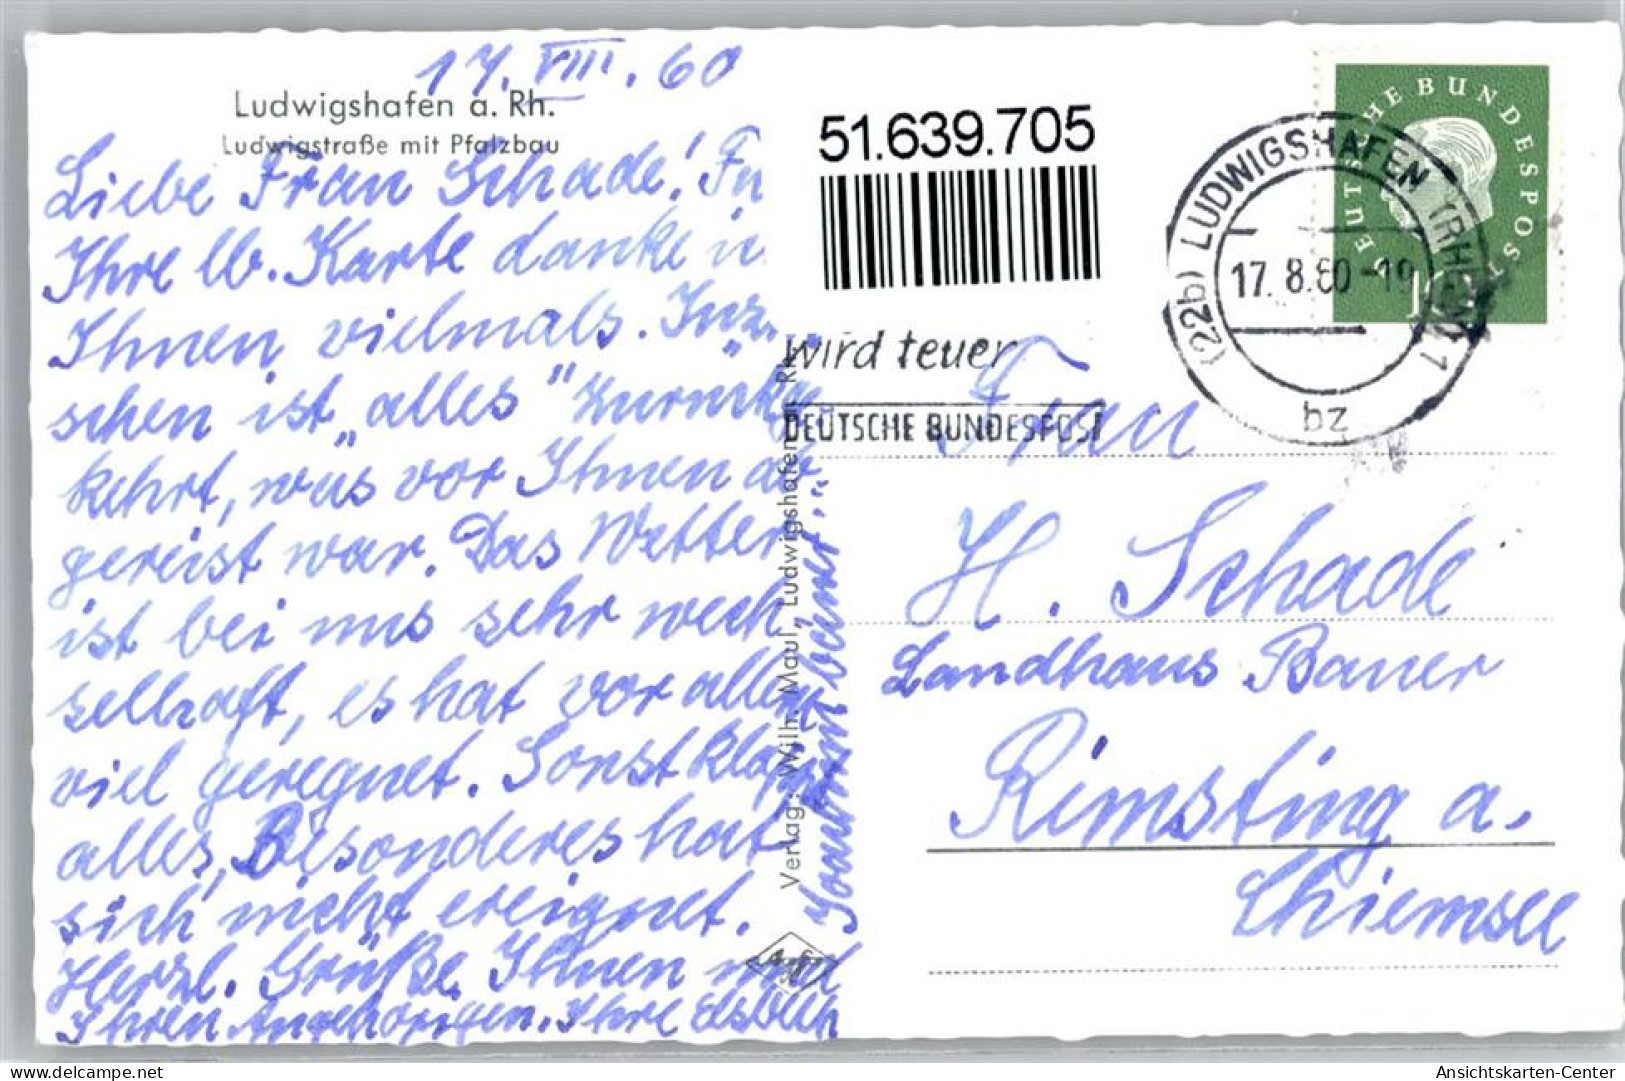 17. VIII. 60
Ludwigshafen a. Rh.
Ludwigstraße mit Pfalzbau
Liebe Frau Schade! Für
Ihre lb. Karte danke i
Ihnen vielmals. Inz-
schen ist „alles" zurück
kehrt, was vor Ihnen ab
gereist war. Das Wetter
ist bei uns sehr wech
selhaft, es hat vor allem
viel geregnet. Sonst klappt
alles, Besonderes hat
sich nicht ereignet.
Herzl. Grüße Ihnen und
Ihren Angehörigen. Ihre Elsbeth
Verlag: Wilh. Maul, Ludwigshafen Rh.
51.639.705
wird teuer
DEUTSCHE BUNDESPOST
(22b) LUDWIGSHAFEN (RHEIN) 1
17. 8. 60 -19
bz
DEUTSCHE BUNDESPOST
Frau
H. Schade
Landhaus Bauer
Rimsting a.
Chiemsee
delcampe.net
Ansichtskarten-Center